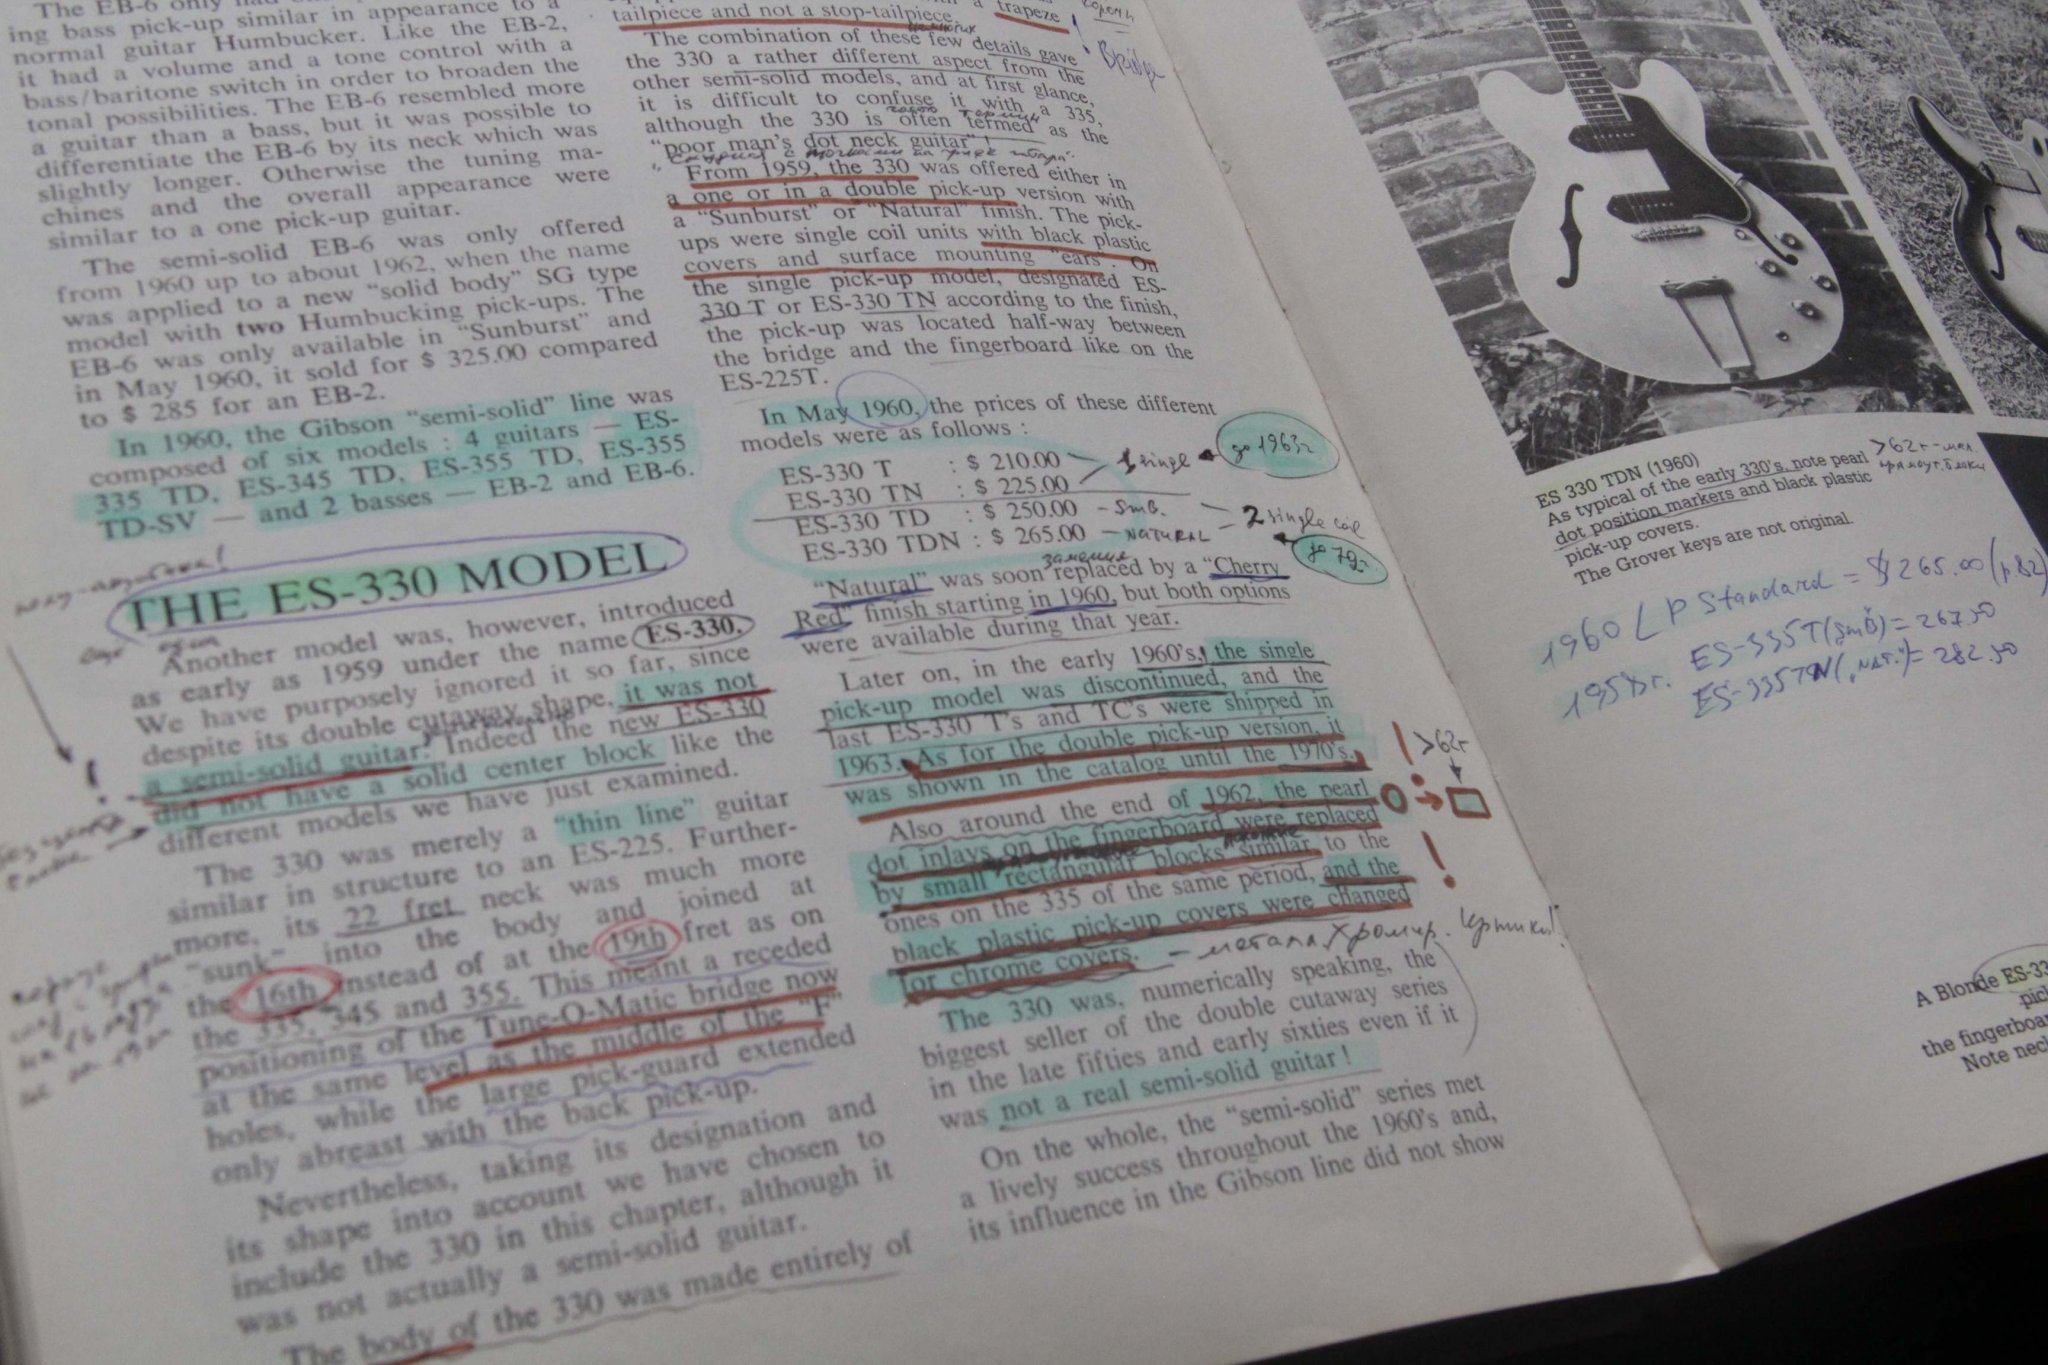 The EB-6 only had
ing bass pick-up similar in appearance to a
normal guitar Humbucker. Like the EB-2,
it had a volume and a tone control with a
bass/baritone switch in order to broaden the
tonal possibilities. The EB-6 resembled more
a guitar than a bass, but it was possible to
differentiate the EB-6 by its neck which was
slightly longer. Otherwise the tuning ma-
chines and the overall appearance were
similar to a one pick-up guitar.
The semi-solid EB-6 was only offered
from 1960 up to about 1962, when the name
was applied to a new "solid body" SG type
model with two Humbucking pick-ups. The
EB-6 was only available in "Sunburst" and
in May 1960, it sold for $ 325.00 compared
to $ 285 for an EB-2.
In 1960, the Gibson "semi-solid" line was
composed of six models : 4 guitars — ES-
335 TD, ES-345 TD, ES-355 TD, ES-355
TD-SV — and 2 basses — EB-2 and EB-6.
THE ES-330 MODEL
Another model was, however, introduced
as early as 1959 under the name ES-330.
We have purposely ignored it so far, since
despite its double cutaway shape, it was not
a semi-solid guitar! Indeed the new ES-330
did not have a solid center block like the
different models we have just examined.
The 330 was merely a "thin line" guitar
similar in structure to an ES-225. Further-
more, its 22 fret neck was much more
"sunk" into the body and joined at
the 16th instead of at the 19th fret as on
the 335, 345 and 355. This meant a receded
positioning of the Tune-O-Matic bridge now
at the same level as the middle of the "F"
holes, while the large pick-guard extended
only abreast with the back pick-up.
Nevertheless, taking its designation and
its shape into account we have chosen to
include the 330 in this chapter, although it
was not actually a semi-solid guitar.
The body of the 330 was made entirely of
tailpiece and not a stop-tailpiece. with a trapeze
! Bridge
The combination of these few details gave
the 330 a rather different aspect from the
other semi-solid models, and at first glance,
it is difficult to confuse it with a 335,
although the 330 is often termed as the
"poor man's dot neck guitar"
From 1959, the 330 was offered either in
a one or in a double pick-up version with
a "Sunburst" or "Natural" finish. The pick-
ups were single coil units with black plastic
covers and surface mounting "ears". On
the single pick-up model, designated ES-
330 T or ES-330 TN according to the finish,
the pick-up was located half-way between
the bridge and the fingerboard like on the
ES-225T.
In May 1960, the prices of these different
models were as follows :
ES-330 T : $ 210.00
ES-330 TN : $ 225.00 1 single до 1963г
ES-330 TD : $ 250.00 - SmB.
ES-330 TDN : $ 265.00 - NATURAL 2 single coil до 79г.
"Natural" was soon replaced by a "Cherry
Red" finish starting in 1960, but both options
were available during that year.
Later on, in the early 1960's, the single
pick-up model was discontinued, and the
last ES-330 T's and TC's were shipped in
1963. As for the double pick-up version, it
was shown in the catalog until the 1970's.
! >62г
Also around the end of 1962, the pearl
dot inlays on the fingerboard were replaced
by small rectangular blocks similar to the
ones on the 335 of the same period, and the
black plastic pick-up covers were changed
for chrome covers. - металл. хромир. крышки!
The 330 was, numerically speaking, the
biggest seller of the double cutaway series
in the late fifties and early sixties even if it
was not a real semi-solid guitar!
On the whole, the "semi-solid" series met
a lively success throughout the 1960's and,
its influence in the Gibson line did not show
ES 330 TDN (1960)
As typical of the early 330's, note pearl
dot position markers and black plastic
pick-up covers.
The Grover keys are not original.
>62г-мал.
прямоуг. блоки
1960 LP Standard = $265.00 (p.82)
1958г. ES-335T (SmB) = 267.50
ES-335TN ("NAT.") = 282.50
A Blonde ES-33
pic
the fingerboar
Note neck